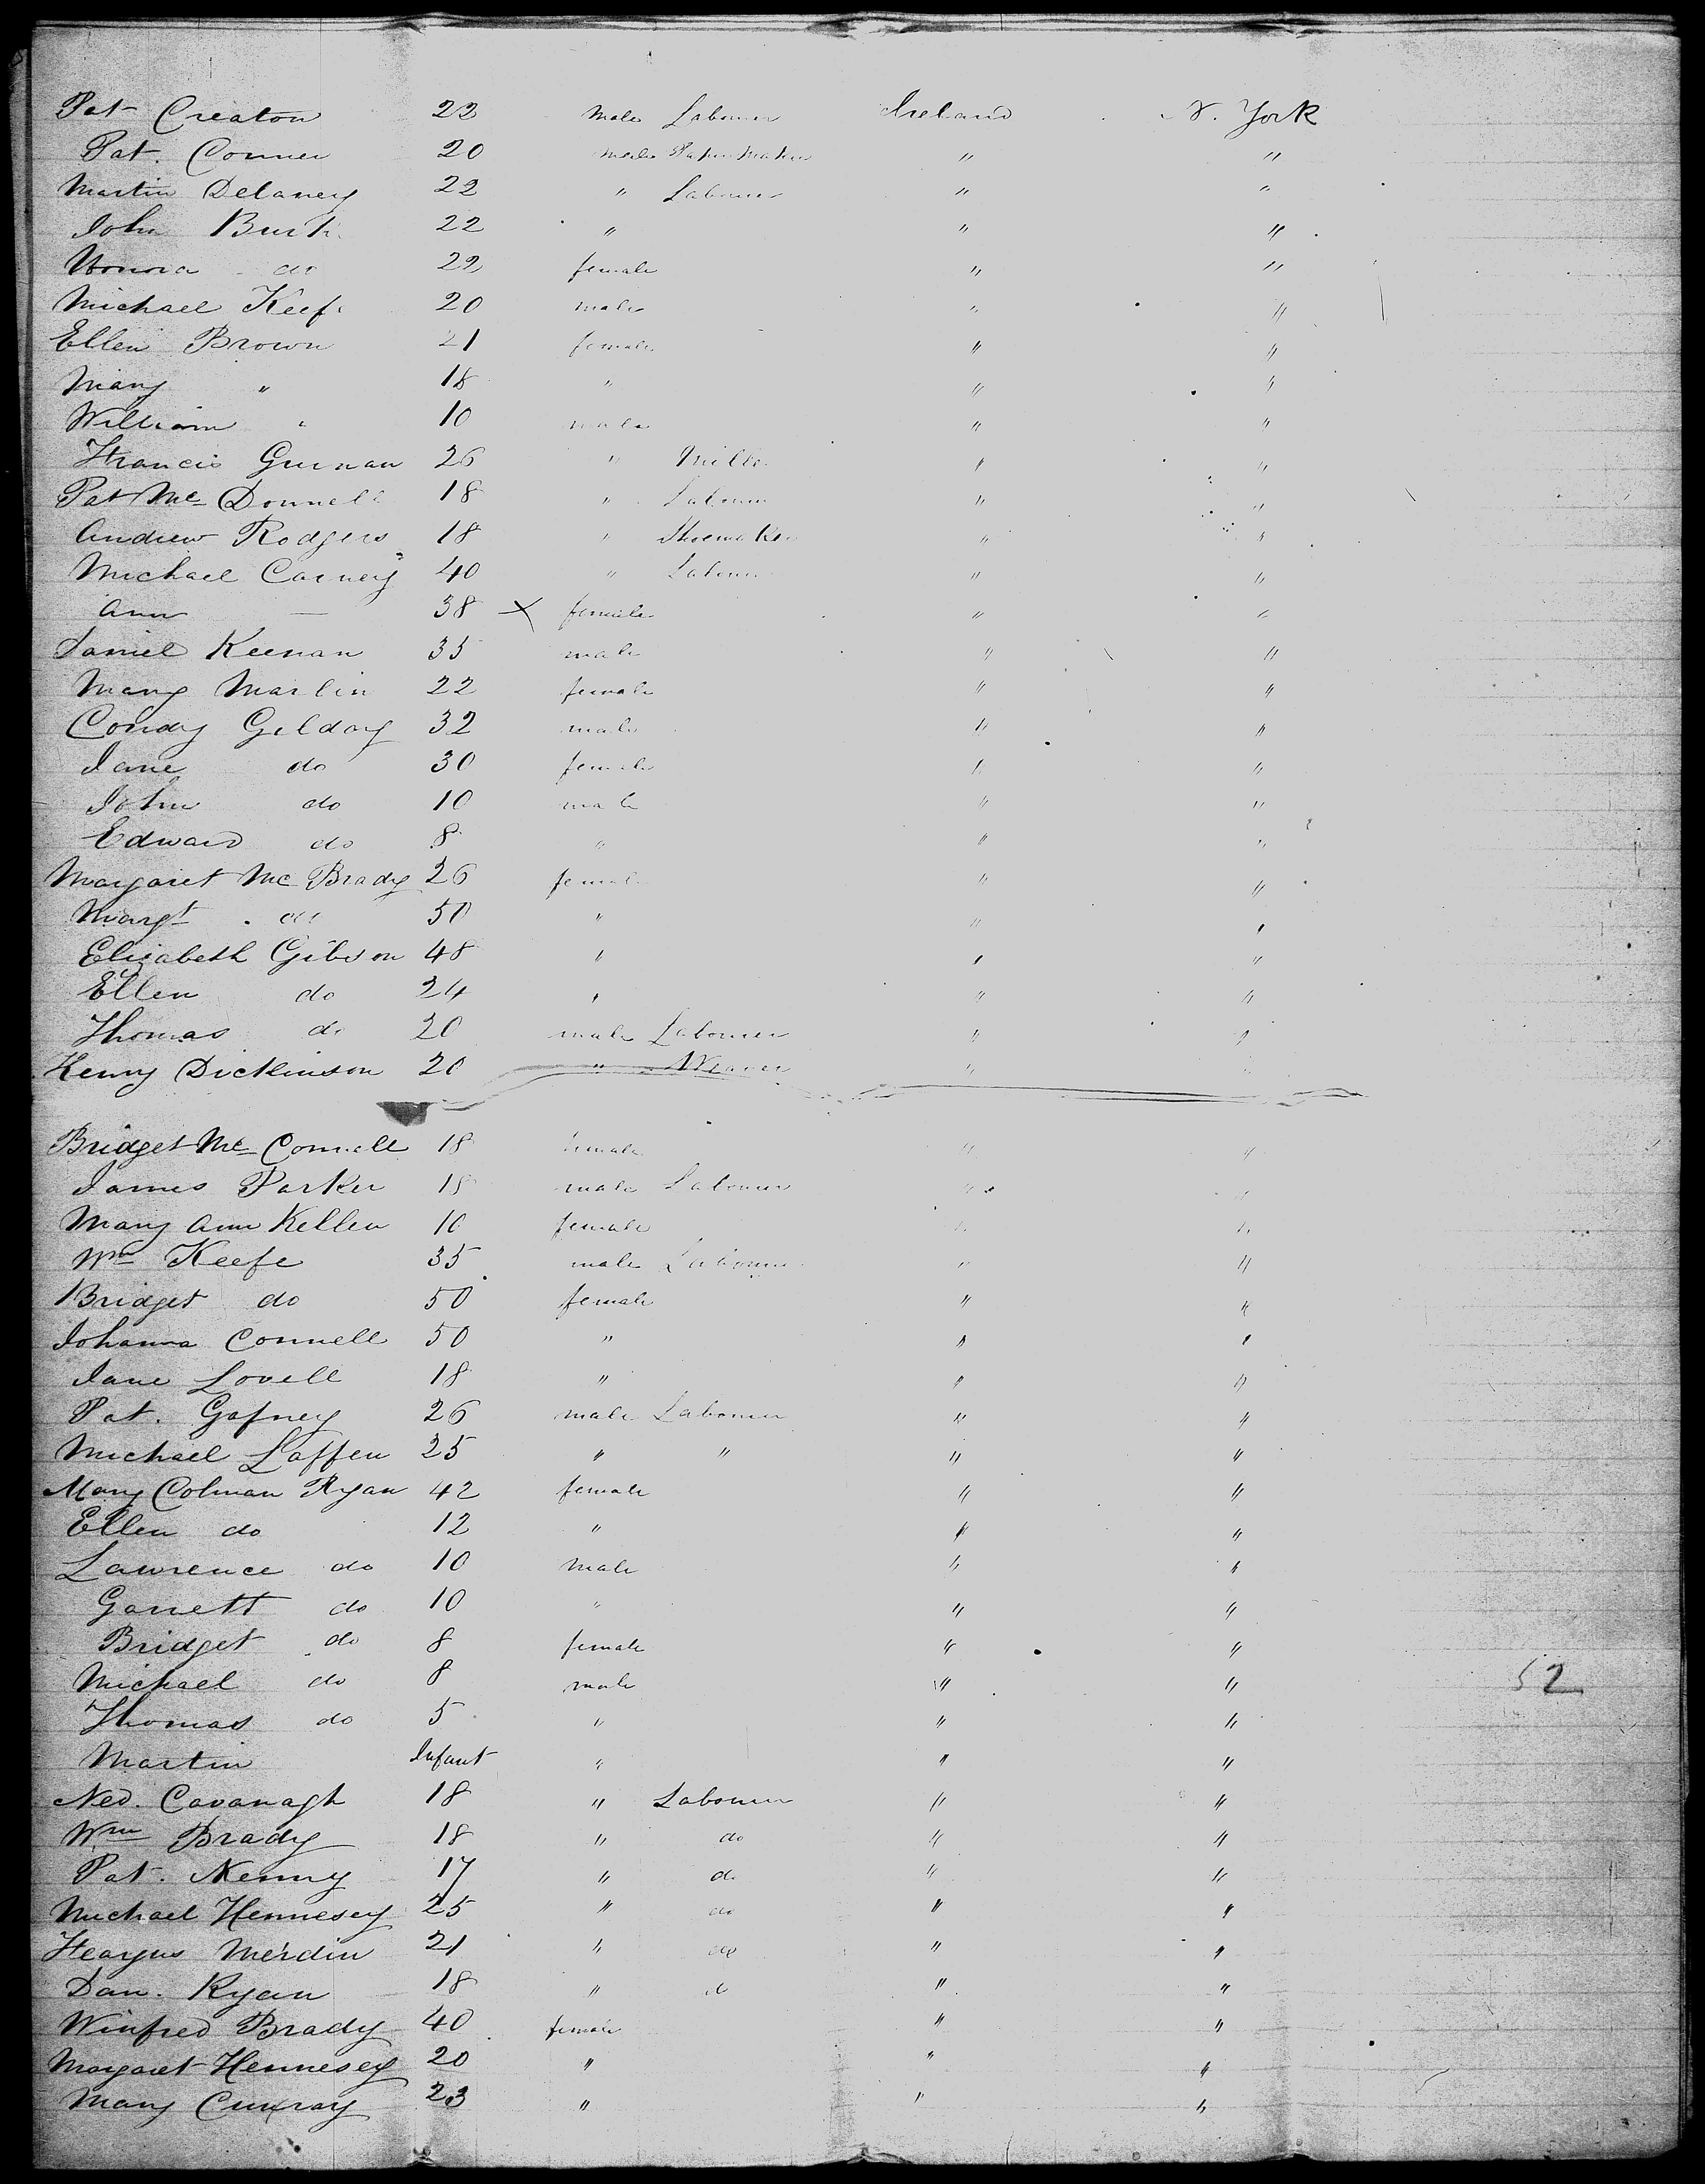 Pat Creaton 22 Male Labourer Ireland N. York
Pat. Conner 20 Male Paper Maker " "
Martin Delaney 22 " Labourer " "
John Burk 22 " " "
Honora do 22 female " "
Michael Keefe 20 male " "
Ellen Brown 21 female " "
Mary " 18 " " "
William " 10 male " "
Francis Gurnan 26 " Miller " "
Pat McDonnell 18 " Labourer " "
Andrew Rodgers 18 " Shoemaker " "
Michael Carney 40 " Labourer " "
Ann — 38 X female " "
Daniel Keenan 35 male " "
Mary Martin 22 female " "
Condy Gilday 32 male " "
Jane do 30 female " "
John do 10 male " "
Edward do 8 " " "
Margaret McBrady 26 female " "
Margt do 50 " " "
Elizabeth Gibson 48 " " "
Ellen do 24 " " "
Thomas do 20 male Labourer " "
Henry Dickinson 20 " Weaver " "
Bridget McConnell 18 female " "
James Parker 18 male Labourer " "
Mary Ann Kellen 10 female " "
Wm Keefe 35 male Labourer " "
Bridget do 50 female " "
Johanna Connell 50 " " "
Jane Lovell 18 " " "
Pat. Gafney 26 male Labourer " "
Michael Laffen 25 " " " "
Mary Colman Ryan 42 female " "
Ellen do 12 " " "
Lawrence do 10 male " "
Garrett do 10 " " "
Bridget do 8 female " "
Michael do 8 male " "
52
Thomas do 5 " " "
Martin Infant " " "
Ned. Cavanagh 18 " Labourer " "
Wm Brady 18 " do " "
Pat. Kenny 17 " do " "
Michael Hennesey 25 " do " "
Feargus Merdin 21 " do " "
Dan. Ryan 18 " do " "
Winfred Brady 40 female " "
Margaret Hennesey 20 " " "
Mary 23 " " "